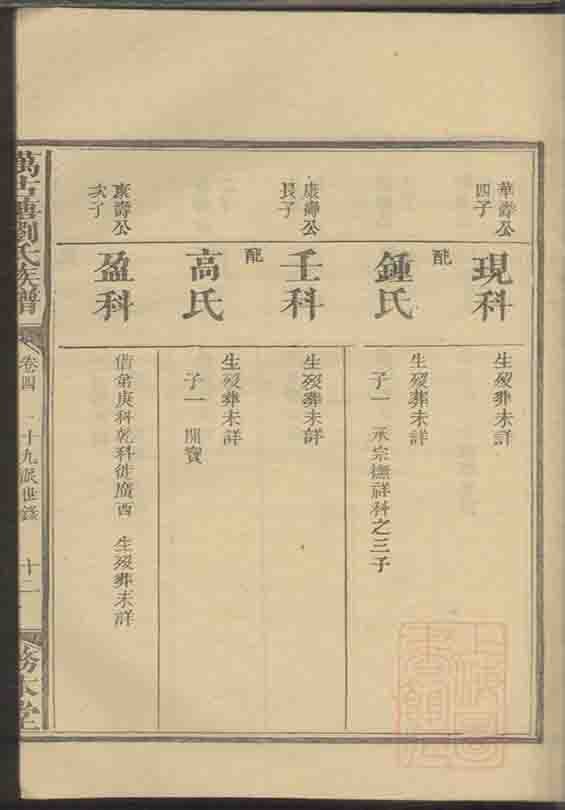 華壽公
四子
現科
生歿葬未詳
配
鍾氏
生歿葬未詳
子一 承宗撫祥科之三子
康壽公
長子
壬科
生歿葬未詳
配
高氏
生歿葬未詳
子一 開寶
康壽公
次子
盈科
偕弟庚科乾科徙廣西 生歿葬未詳
劉氏族譜
卷四
十九派世錄
十二
務本堂